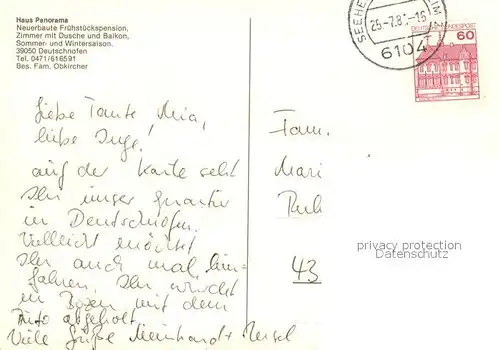 Haus Panorama
Neuerbaute Frühstückspension,
Zimmer mit Dusche und Balkon,
Sommer- und Wintersaison.
39050 Deutschnofen
Tel. 0471/616591
Bes. Fam. Obkircher
SEEHEIM
25.-7.8 -16
6104
DEUTSCHE BUNDESPOST
60
Liebe Tante Mia,
liebe Inge!
auf der Karte seht
Ihr unser Quartier
in Deutschnofen.
Vielleicht möchtet
Ihr auch mal hin-
fahren. Ihr würdet
in Bozen mit dem
Auto abgeholt
Viele Grüße Meinhardt
Fam.
Mari
43
privacy protection
AK-ANSICHTSKARTEN.DE